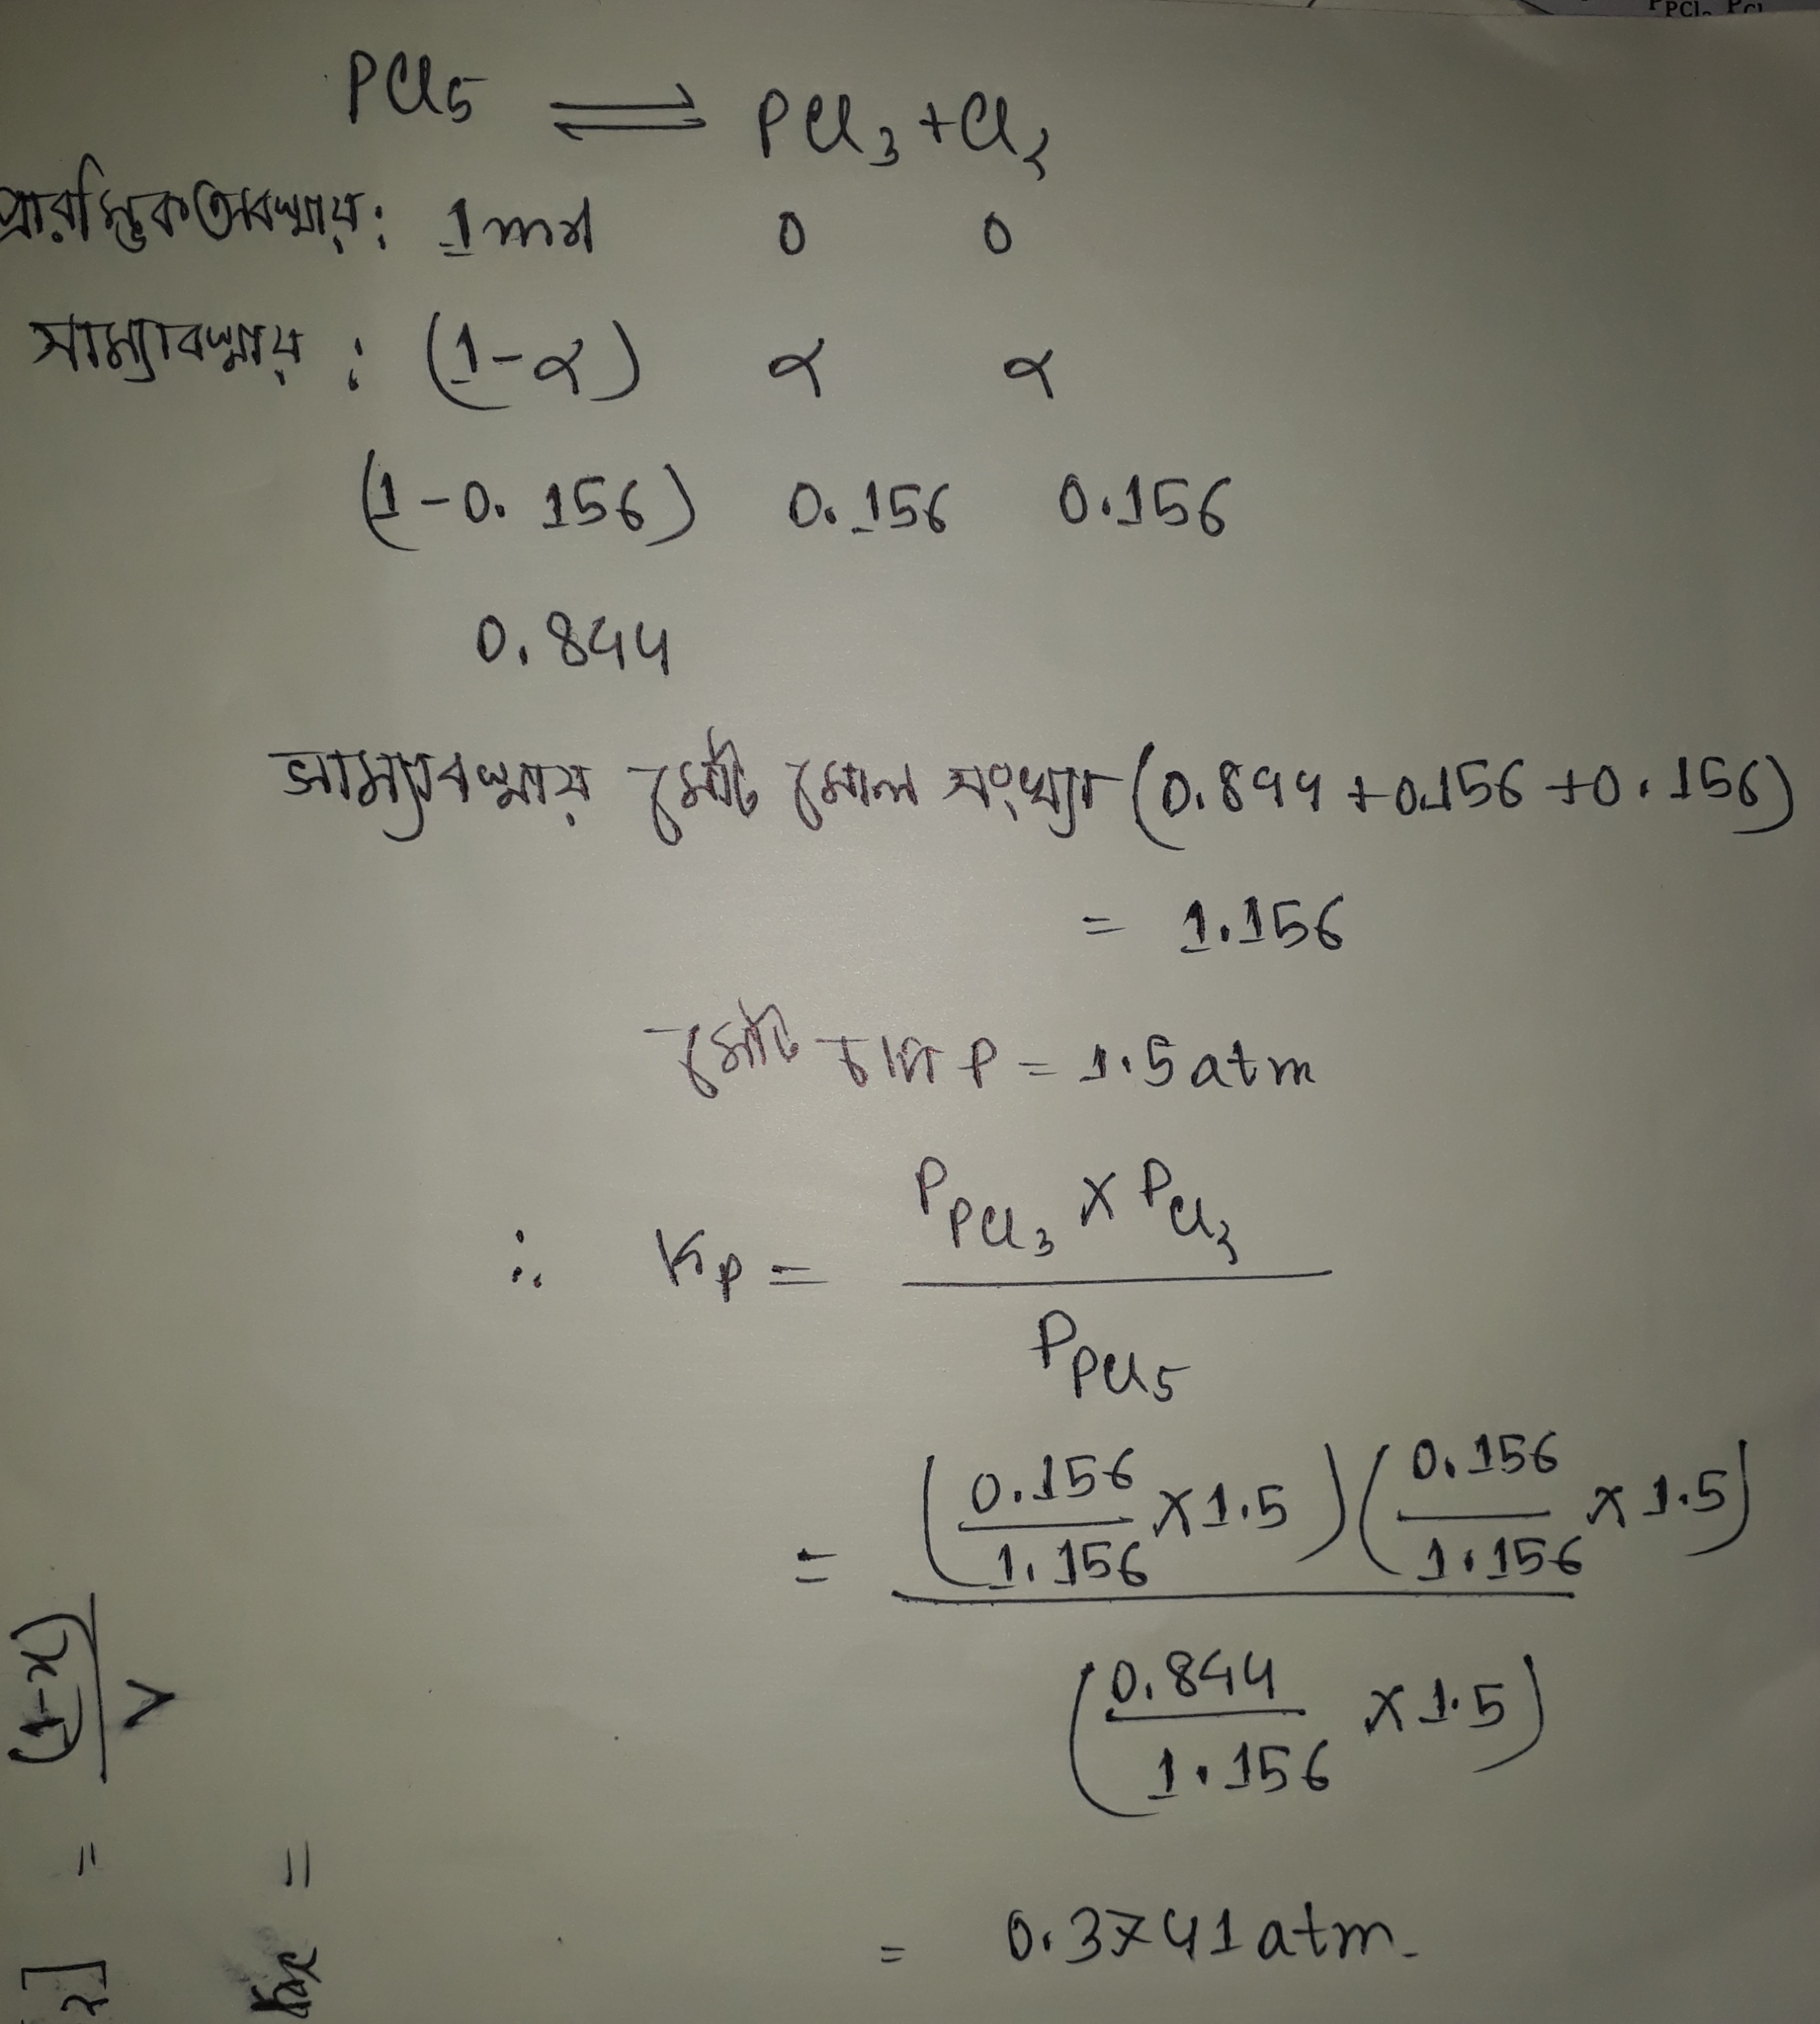 PCl₅ ⇌ PCl₃ + Cl₂
প্রারম্ভিক অবস্থায়: 1 mol 0 0
সাম্যাবস্থায় : (1-α) α α
(1-0.156) 0.156 0.156
0.844
সাম্যাবস্থায় মোট মোল সংখ্যা (0.844 + 0.156 + 0.156)
= 1.156
মোট চাপ P = 1.5 atm
∴ Kp = P_PCl₃ × P_Cl₂ / P_PCl₅
= (0.156/1.156 × 1.5) (0.156/1.156 × 1.5) / (0.844/1.156 × 1.5)
= 0.3741 atm.
(1-x)
V
=
=